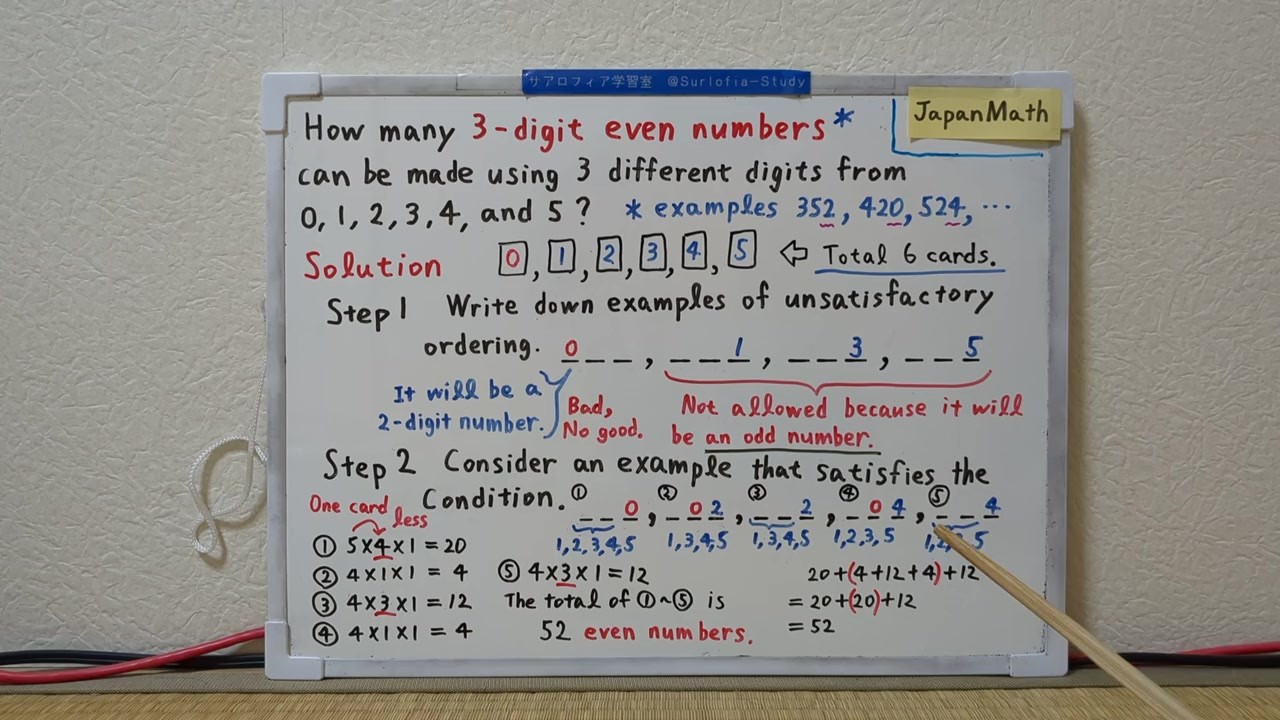 サアロフィア学習室 @Surlofia-Study
JapanMath
How many 3-digit even numbers*
can be made using 3 different digits from
0, 1, 2, 3, 4, and 5 ? * examples 352, 420, 524, ...
Solution 0, 1, 2, 3, 4, 5 ⇦ Total 6 cards.
Step 1 Write down examples of unsatisfactory
ordering. 0 _ _ , _ _ 1, _ _ 3, _ _ 5
It will be a
2-digit number.
Bad,
No good.
Not allowed because it will
be an odd number.
Step 2 Consider an example that satisfies the
Condition. ① _ _ 0, ② _ 0 2, ③ _ _ 2, ④ _ 0 4, ⑤ _ _ 4
1,2,3,4,5 1,3,4,5 1,3,4,5 1,2,3,5 1,2, 5
One card
less
① 5×4×1 = 20
② 4×1×1 = 4
③ 4×3×1 = 12
④ 4×1×1 = 4
⑤ 4×3×1 = 12
The total of ①~⑤ is
52 even numbers.
20+(4+12+4)+12
= 20+(20)+12
= 52